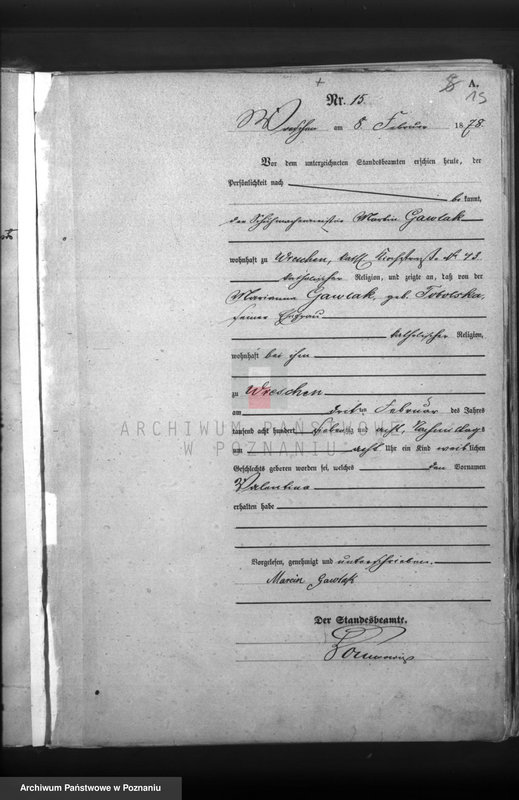 8 A.
15
Nr. 15.
Wreschen am 8. Februar 1878.
Vor dem unterzeichneten Standesbeamten erschien heute, der
Persönlichkeit nach
bekannt,
der Schuhmachermeister Martin Gawlak
wohnhaft zu Wreschen, Nr. 43.
katholischer Religion, und zeigte an, daß von der
Marianna Gawlak, geb. Tobolska,
seiner Ehefrau
katholischer Religion,
wohnhaft bei ihm
zu Wreschen
am dritten Februar des Jahres
tausend acht hundert siebenzig und acht, Nachmittags
um acht Uhr ein Kind weiblichen
Geschlechts geboren worden sei, welches den Vornamen
Valentina
erhalten habe
Vorgelesen, genehmigt und unterschrieben.
Marcin Gawlak
Der Standesbeamte.
ARCHIWUM PAŃSTWOWE
W POZNANIU
Archiwum Państwowe w Poznaniu